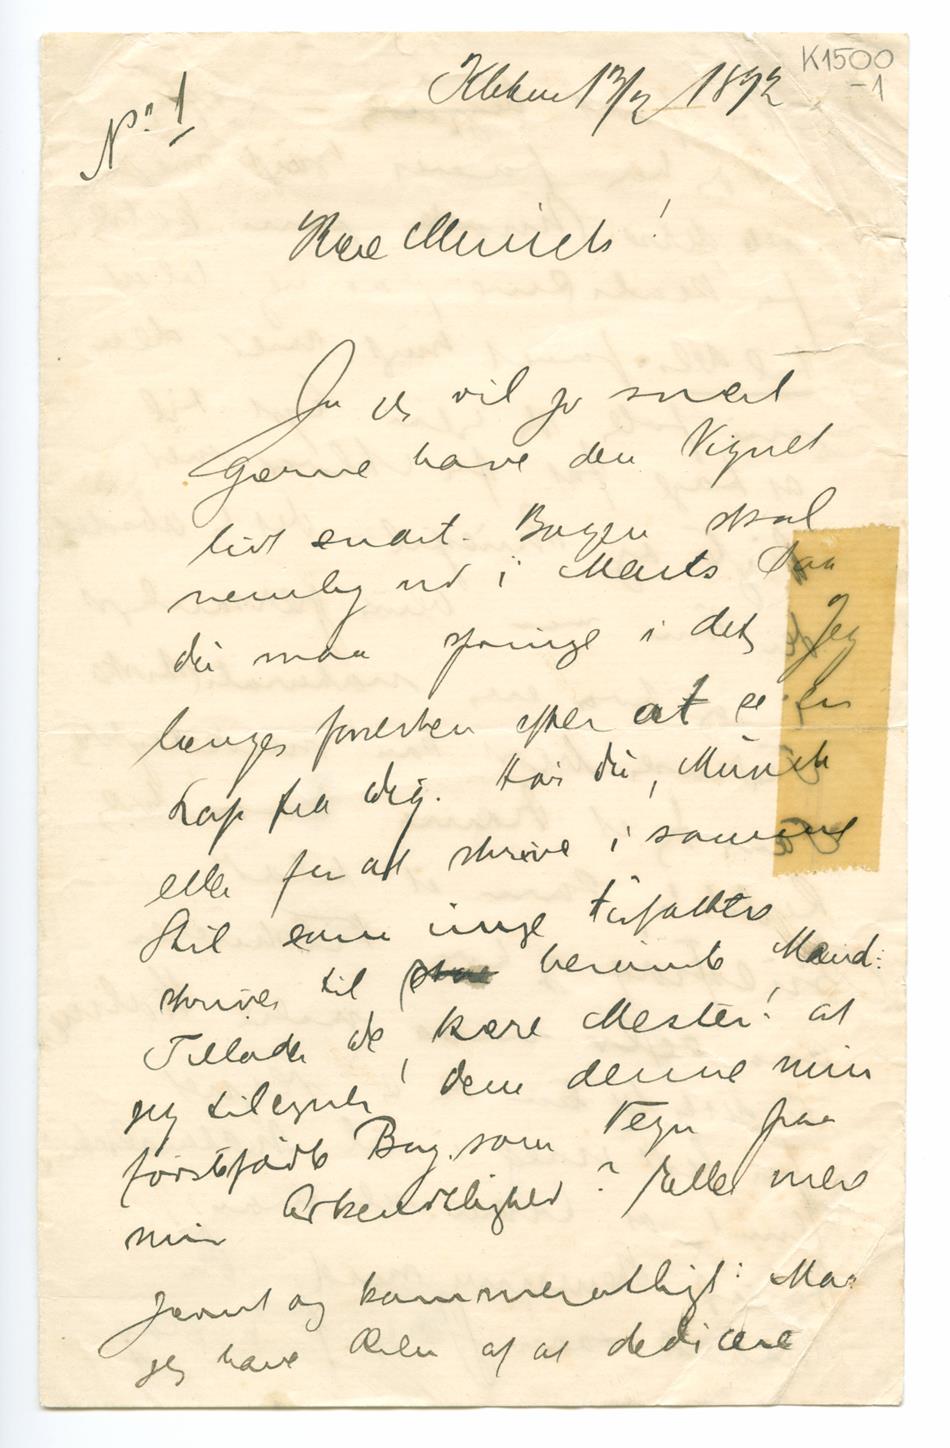 K1500
-1
No 1
13/2 1892
Kære Munch!
Ja jeg vil jo snart
gerne have den Vignet
lidt snart. Bogen skal
nemlig ud i Marts Saa
du maa springe i det, Jeg
længes forresten efter at se en
Lap fra dig. Hør du, Munch
eller for at skrive i samme
Stil som unge Forfattere
skriver til berømte Mænd:
Tillader De, kære Mester! at
jeg tilegner Dem denne min
førstefødte Bog som Tegn paa
min Erkendtlighed? Eller mere
jævnt og kammeratligt: Maa
jeg have Æren af at dedicere